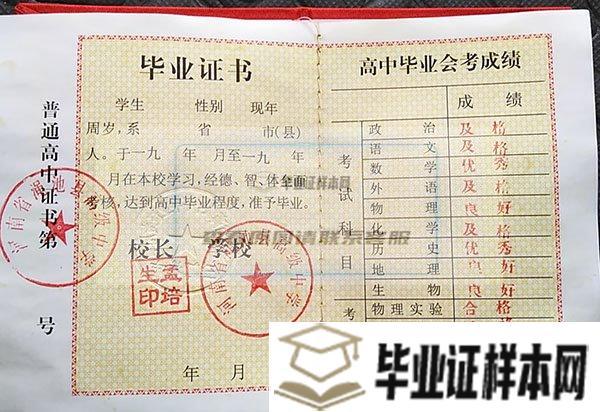 毕业证书
学生 性别 现年
周岁,系 省 市(县)
人。于一九 年 月至一九 年
月在本校学习,经德、智、体全面
考核,达到高中毕业程度,准予毕业。
校长 学校
年 月
普通高中证书第 号
河南省渑池县高级中学
孟培生印
高中毕业会考成绩
考试科目 成绩
政治 及格
语文 及格
数学 优秀
外语 及格
物理 良好
化学 及格
历史 优秀
地理 良好
生物 良好
考 物理实验 合格
毕业证样本网